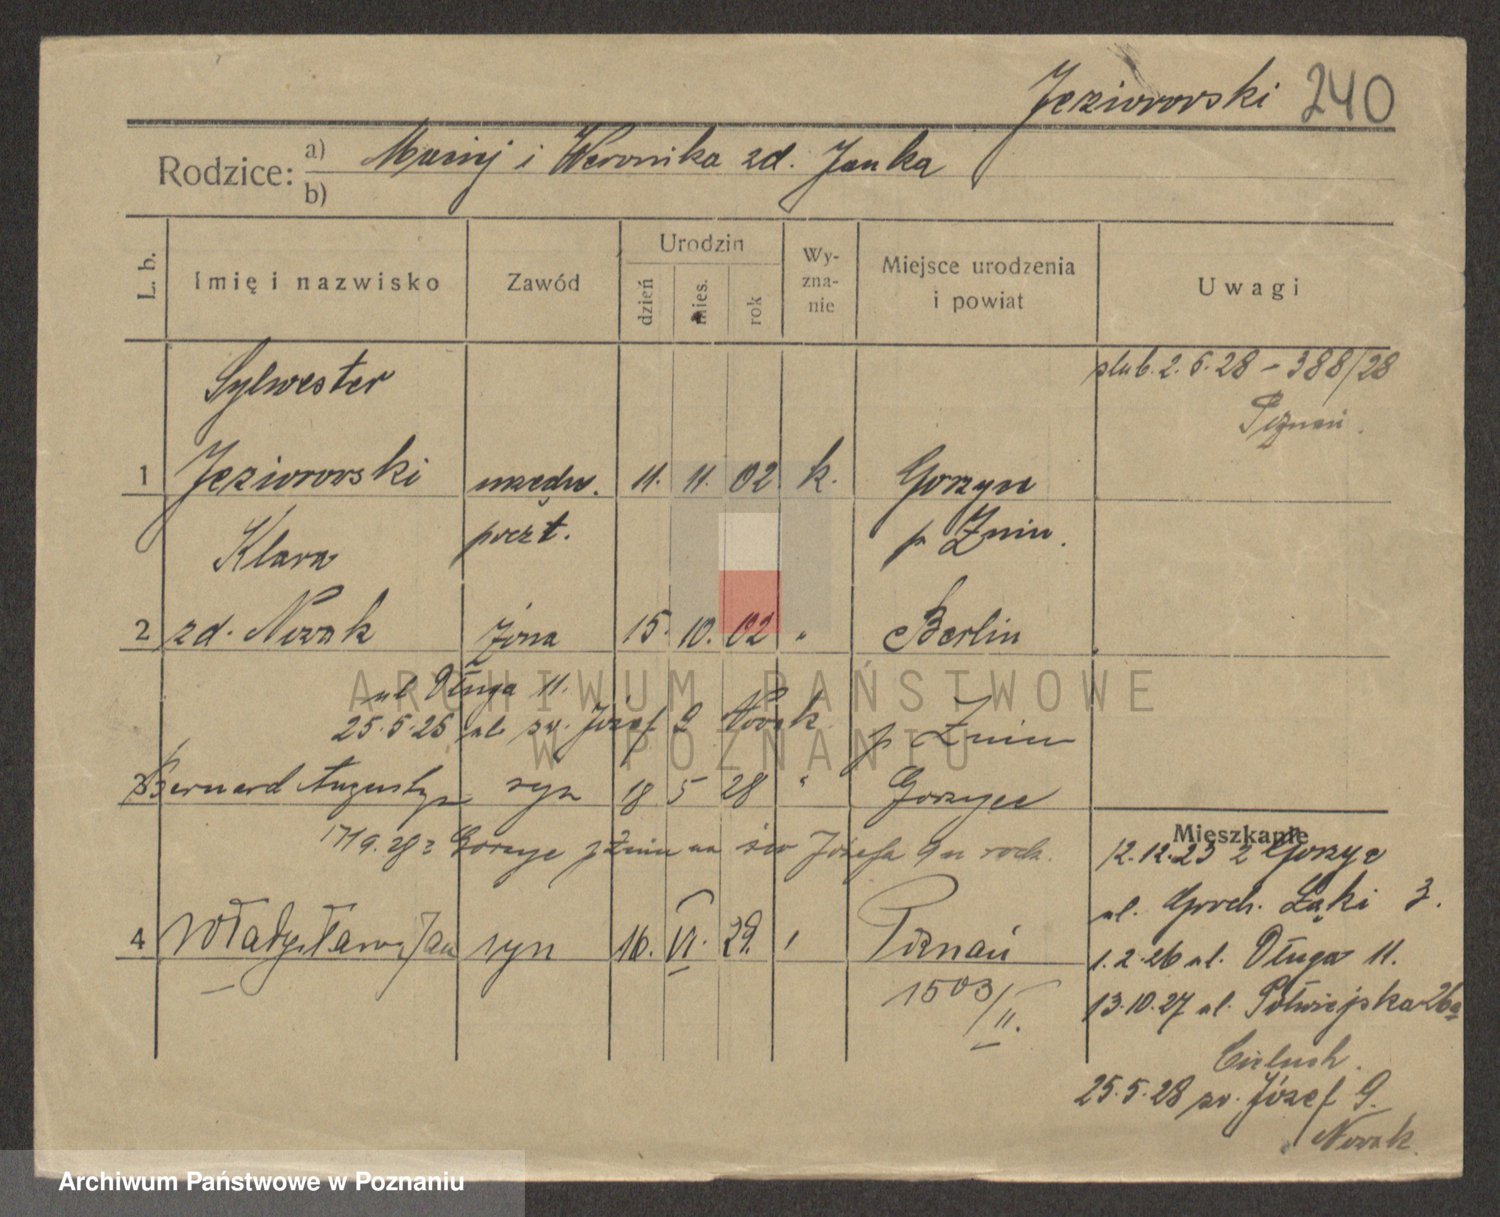 Jeziorowski 240
Rodzice: a) Maciej i Weronika zd. Janka
b)
L. b. Imię i nazwisko Zawód Urodzin dzień mies. rok Wy-zna-nie Miejsce urodzenia i powiat Uwagi
Sylwester ślub. 2.5.28 – 388/28
Poznań.
1 Jeziorowski urzędn. 11. 11. 02 k. Gorzyce
Klara poczt. p. Żnin.
2 zd. Nowak żona 15. 10. 02 " Berlin
ul Długa 11.
25.5.28 ul. św. Józef 9 Nowak p Żnin
3 Bernard Augustyn syn 18 5 28 " Gorzyce
Mieszkanie
17/9.28 z Gorzyc p Żnin na św Józefa 9 u rodz.
12.12.23 z Gorzyc
ul. Łąki 3.
4 Władysław Jan syn 16. VI. 29. Poznań
1.2.26 ul. Długa 11.
1503/II.
13.10.27 ul. Półwiejska 26a
25.5.28 św. Józef 9.
Nowak
ARCHIWUM PAŃSTWOWE
W POZNANIU
Archiwum Państwowe w Poznaniu